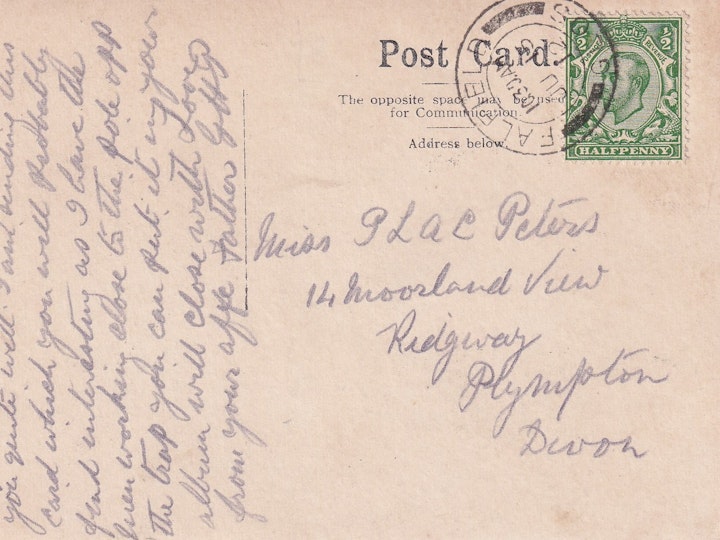 Post Card.
The opposite space may be used
for Communication.
Address below.
FALFIELD
1030AM
JU
½ ½
HALFPENNY
Miss P L & C Peters
14 Moorland View
Ridgway
Plympton
Devon
you quite well. I am sending this
card which you will probably
find interesting as I have the
men working close to the pole opp
the trap you can put it in your
album will close with Love
from your affc Father